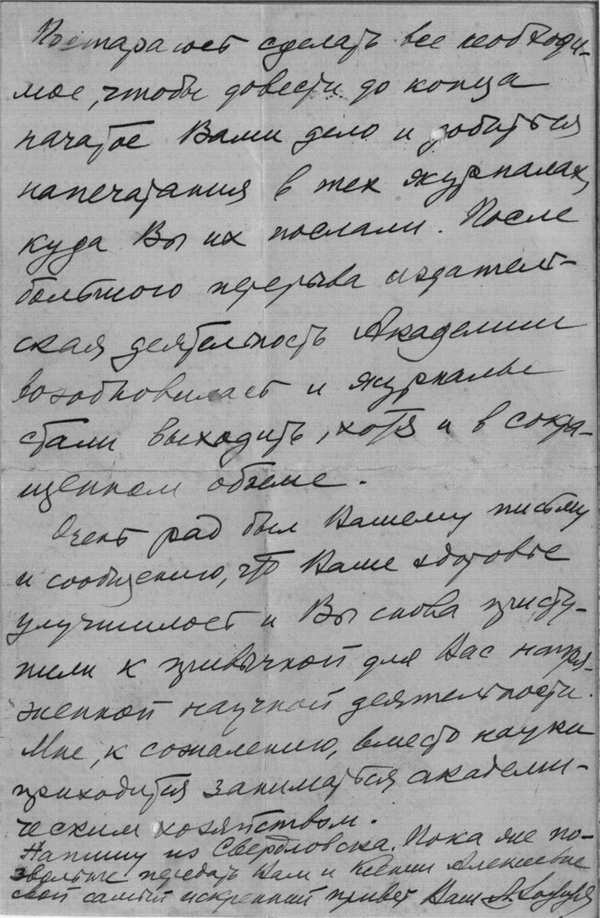 Постараюсь сделать все необходи-
мое, чтобы довести до конца
начатое Вами дело и добиться
напечатания в тех журналах,
куда Вы их послали. После
большого перерыва издатель-
ская деятельность Академии
возобновилась и журналы
стали выходить, хотя и в сокра-
щенном объеме.
Очень рад был Вашему письму
и сообщению, что Ваше здоровье
улучшилось и Вы снова присту-
пили к привычной для Вас напря-
женной научной деятельности.
Мне, к сожалению, вместо науки
приходится заниматься академи-
ческим хозяйством.
Напишу из Свердловска. Пока же по-
звольте передать Вам и Ксении Алексеевне
свой самый искренний привет Ваш А.